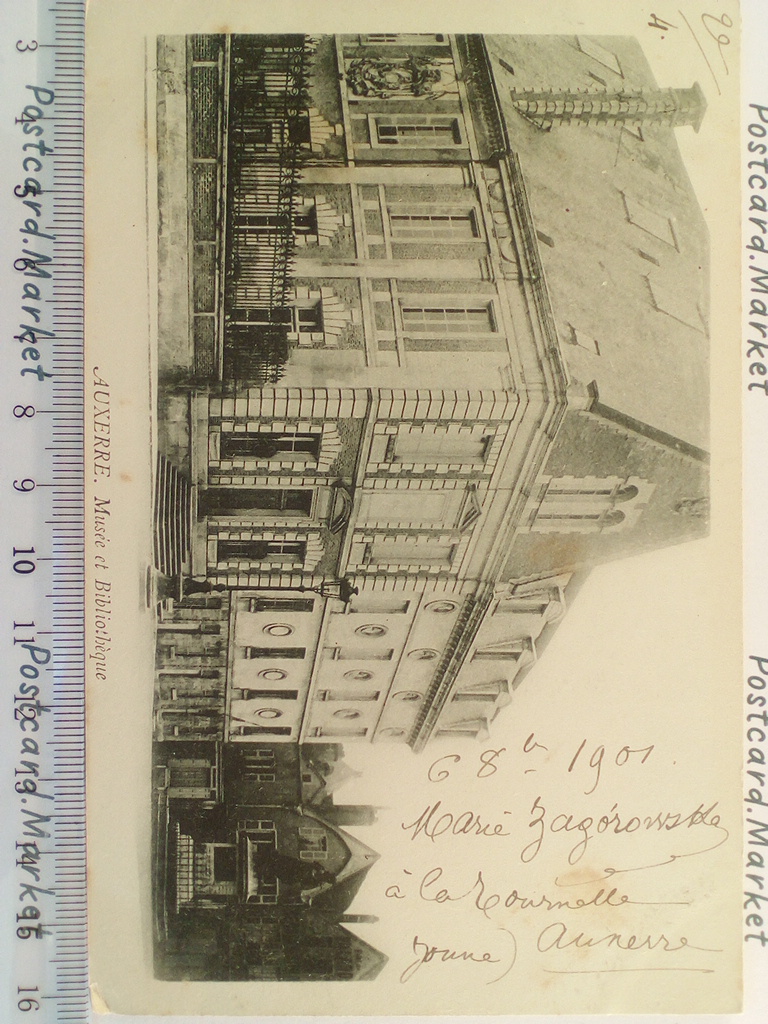 4.
6 8bre 1901.
Marie Zagórowska
à la Tournelle
Yonne) Auxerre
AUXERRE. Musée et Bibliothèque
Postcard.Market
Postcard.Market
Postcard.Market
Postcard.Market
3 4 5 6 7 8 9 10 11 12 13 14 15 16